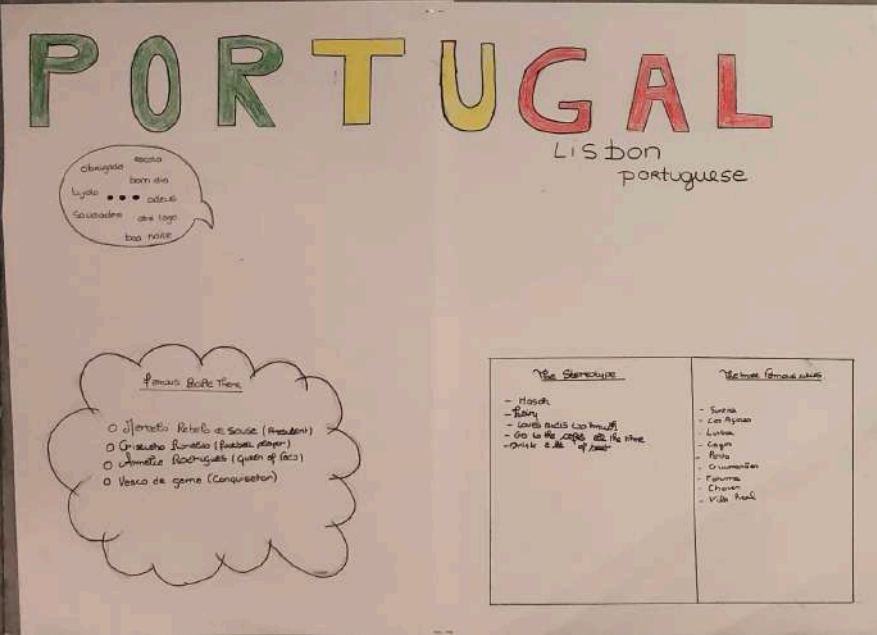 PORTUGAL
Lisbon
portuguese
obrigado escola
bom dia
adeus
Saudades até logo
boa noite
Famous People There
Marcelo Rebelo de Sousa (President)
Cristiano Ronaldo (football player)
Amália Rodrigues (Queen of Fado)
Vasco de gama (Conquistador)
The Stereotype
- Hairy
- Go to the cafés all the time
- Drink a lot of beer
The most famous cities
- Sintra
- Los Açores
- Lisboa
- Lagos
- Porto
- Guimarães
- Chaves
- Villa Real